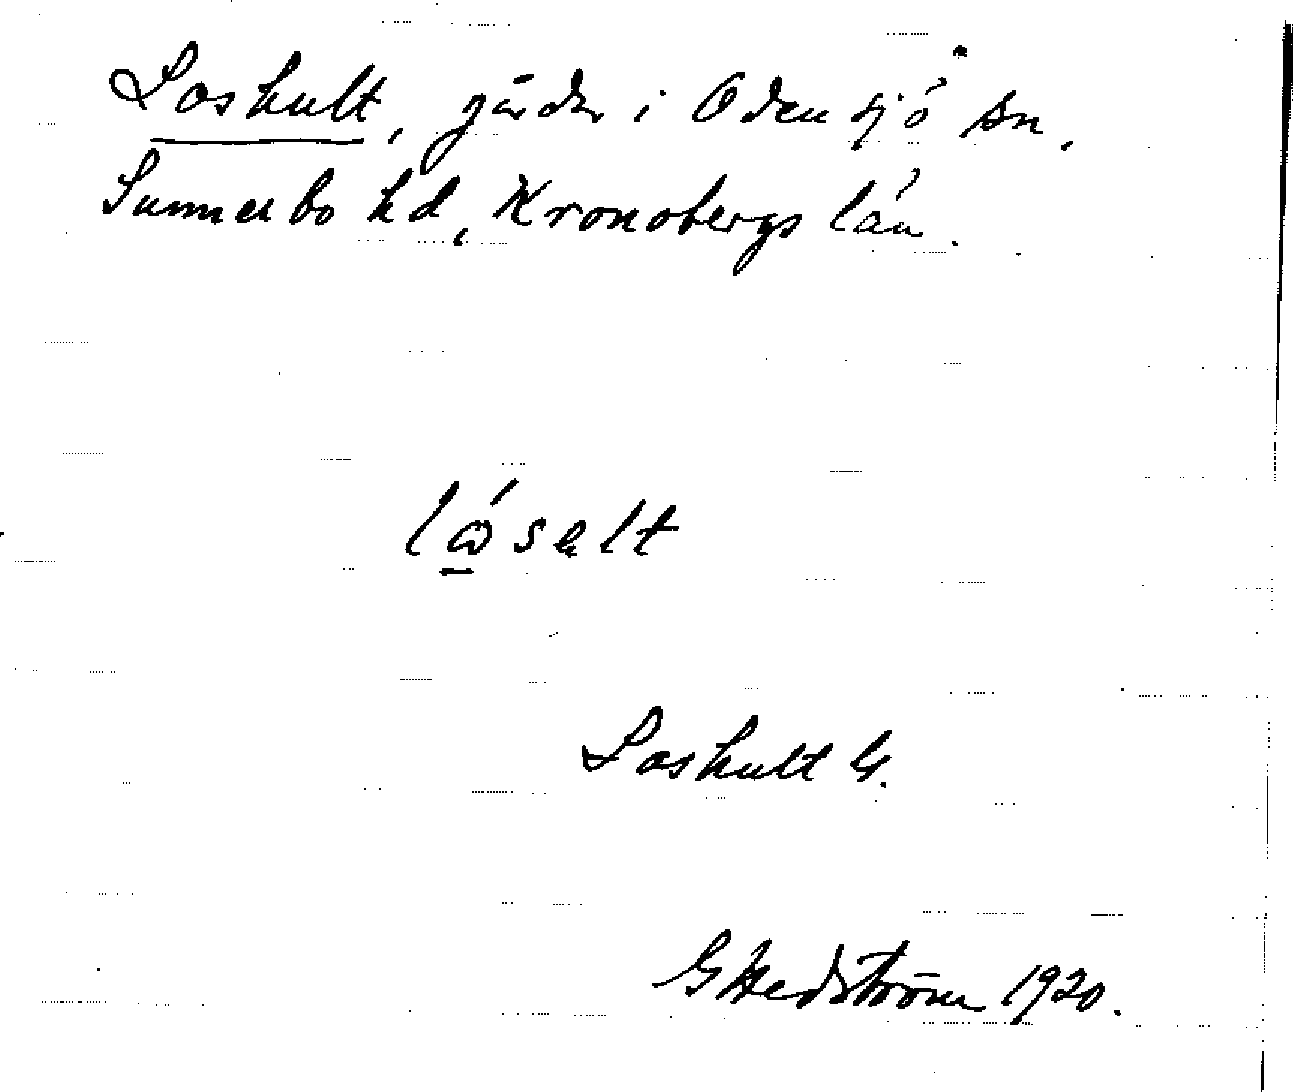 Loshult, gårdar i Odensjö sn.
Sunnerbo hd, Kronobergs län.
lóselt
Loshult G.
G Hedström 1920.